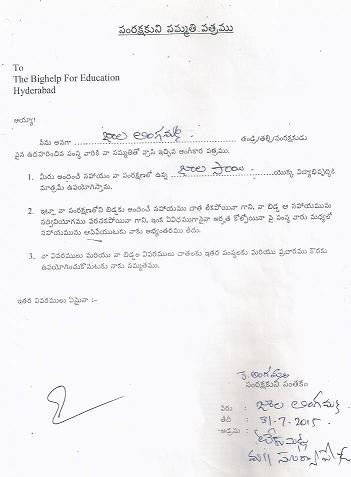 సంరక్షకుని సమ్మతి పత్రము
To
The Bighelp For Education
Hyderabad
అయ్యా!
నేను అనగా జాల లింగమ్మ తండ్రి/తల్లి/సంరక్షకుడు
పైన ఉదహరించిన సంస్థ వారికి నా సమ్మతితో వ్రాసి ఇచ్చిన అంగీకార పత్రము.
1. మీరు అందించే సహాయం నా సంరక్షణలో ఉన్న జాల సాయి యొక్క విద్యాభివృద్ధికి
మాత్రమే ఉపయోగిస్తాను.
2. ఇట్లా నా సంరక్షణలోని బిడ్డకు అందించే సహాయము చాత లేకపోయినా గాని, నా బిడ్డ ఆ సహాయమును
సద్వినియోగము పరచకపోయినా గాని, ఇంకే విధముగానైనా అర్హత కోల్పోయినా పై సంస్థ వారు మధ్యలో
సహాయమును ఆపివేయుటకు నాకు అభ్యంతరము లేదు.
3. నా వివరములు మరియు నా బిడ్డల వివరములు దాతలకు ఇతర సంస్థలకు మరియు ప్రచారము కొరకు
ఉపయోగించుకొనుటకు నాకు సమ్మతము.
ఇతర వివరములు ఏమైనా :-
సంరక్షకుని సంతకం
పేరు : జాల లింగమ్మ
తేది : 31-7-2015
అడ్రసు :